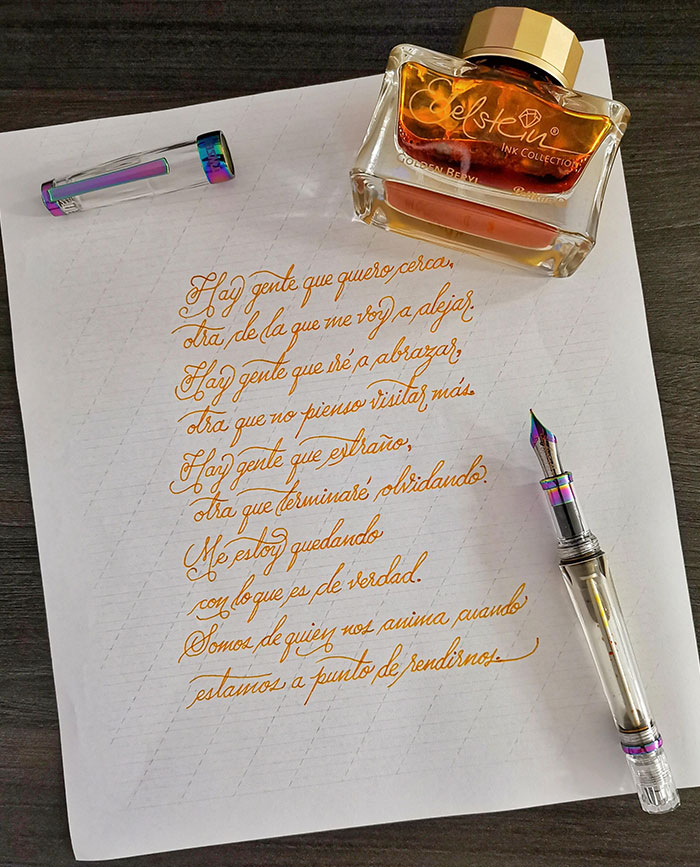 Edelstein®
INK COLLECTION
GOLDEN BERYL
Hay gente que quiero cerca,
otra de la que me voy a alejar.
Hay gente que iré a abrazar,
otra que no pienso visitar más.
Hay gente que extraño,
otra que terminaré olvidando.
Me estoy quedando
con lo que es de verdad.
Somos de quien nos anima cuando
estamos a punto de rendirnos.